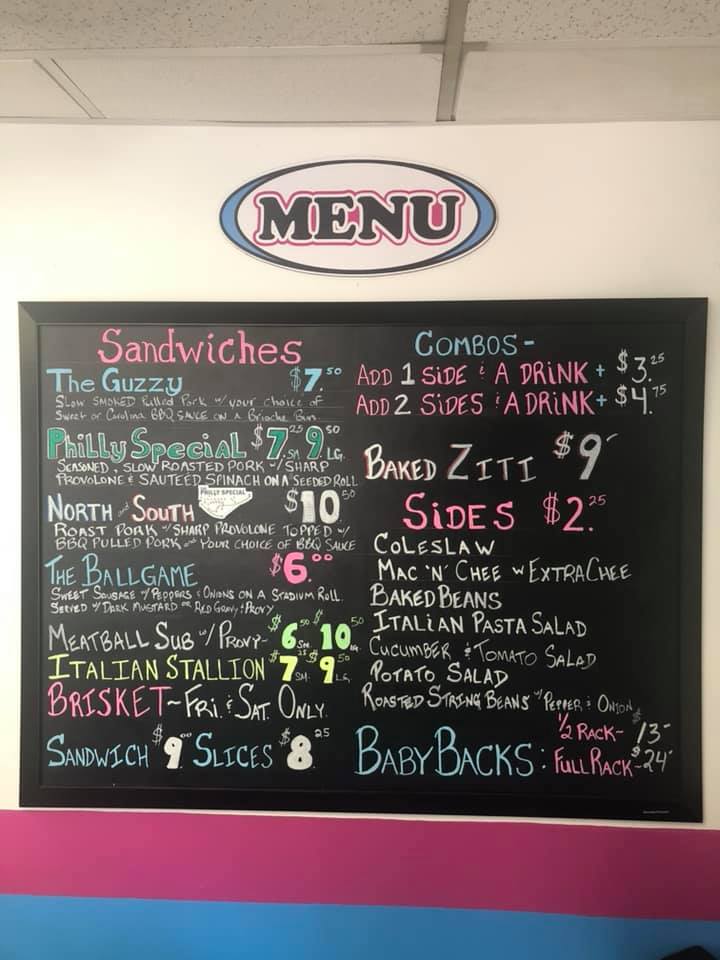 MENU
Sandwiches
The Guzzy $7.50
Slow SMOKED Pulled Pork w/ your choice of
Sweet or Carolina BBQ SAUCE ON A Brioche Bun.
Philly Special $7.25 SM 9.50 LG.
SEASONED, SLOW ROASTED PORK w/ SHARP
PROVOLONE & SAUTEED SPINACH ON A SEEDED ROLL
NORTH and SOUTH PHILLY SPECIAL $10.50
ROAST PORK w/ SHARP PROVOLONE TOPPED w/
BBQ PULLED PORK and YOUR CHOICE OF BBQ SAUCE
THE BALLGAME $6.00
SWEET SAUSAGE w/ PEPPERS & ONIONS ON A STADIUM ROLL.
SERVED w/ DARK MUSTARD OR RED GRAVY & PROVY
MEATBALL SUB w/ PROVY- $6.50 SM. $10.50 LG.
ITALIAN STALLION $7.25 SM. $9.50 LG.
BRISKET~FRI. & SAT. ONLY.
SANDWICH $9.00 SLICES $8.25
COMBOS-
ADD 1 SIDE & A DRINK + $3.25
ADD 2 SIDES & A DRINK + $4.75
BAKED ZITI $9-
SIDES $2.25
COLESLAW
MAC 'N' CHEE w EXTRA CHEE
BAKED BEANS
ITALIAN PASTA SALAD
CUCUMBER & TOMATO SALAD
POTATO SALAD
ROASTED STRING BEANS w/ PEPPER & ONION
BABY BACKS: 1/2 RACK- $13-
FULL RACK- $24-